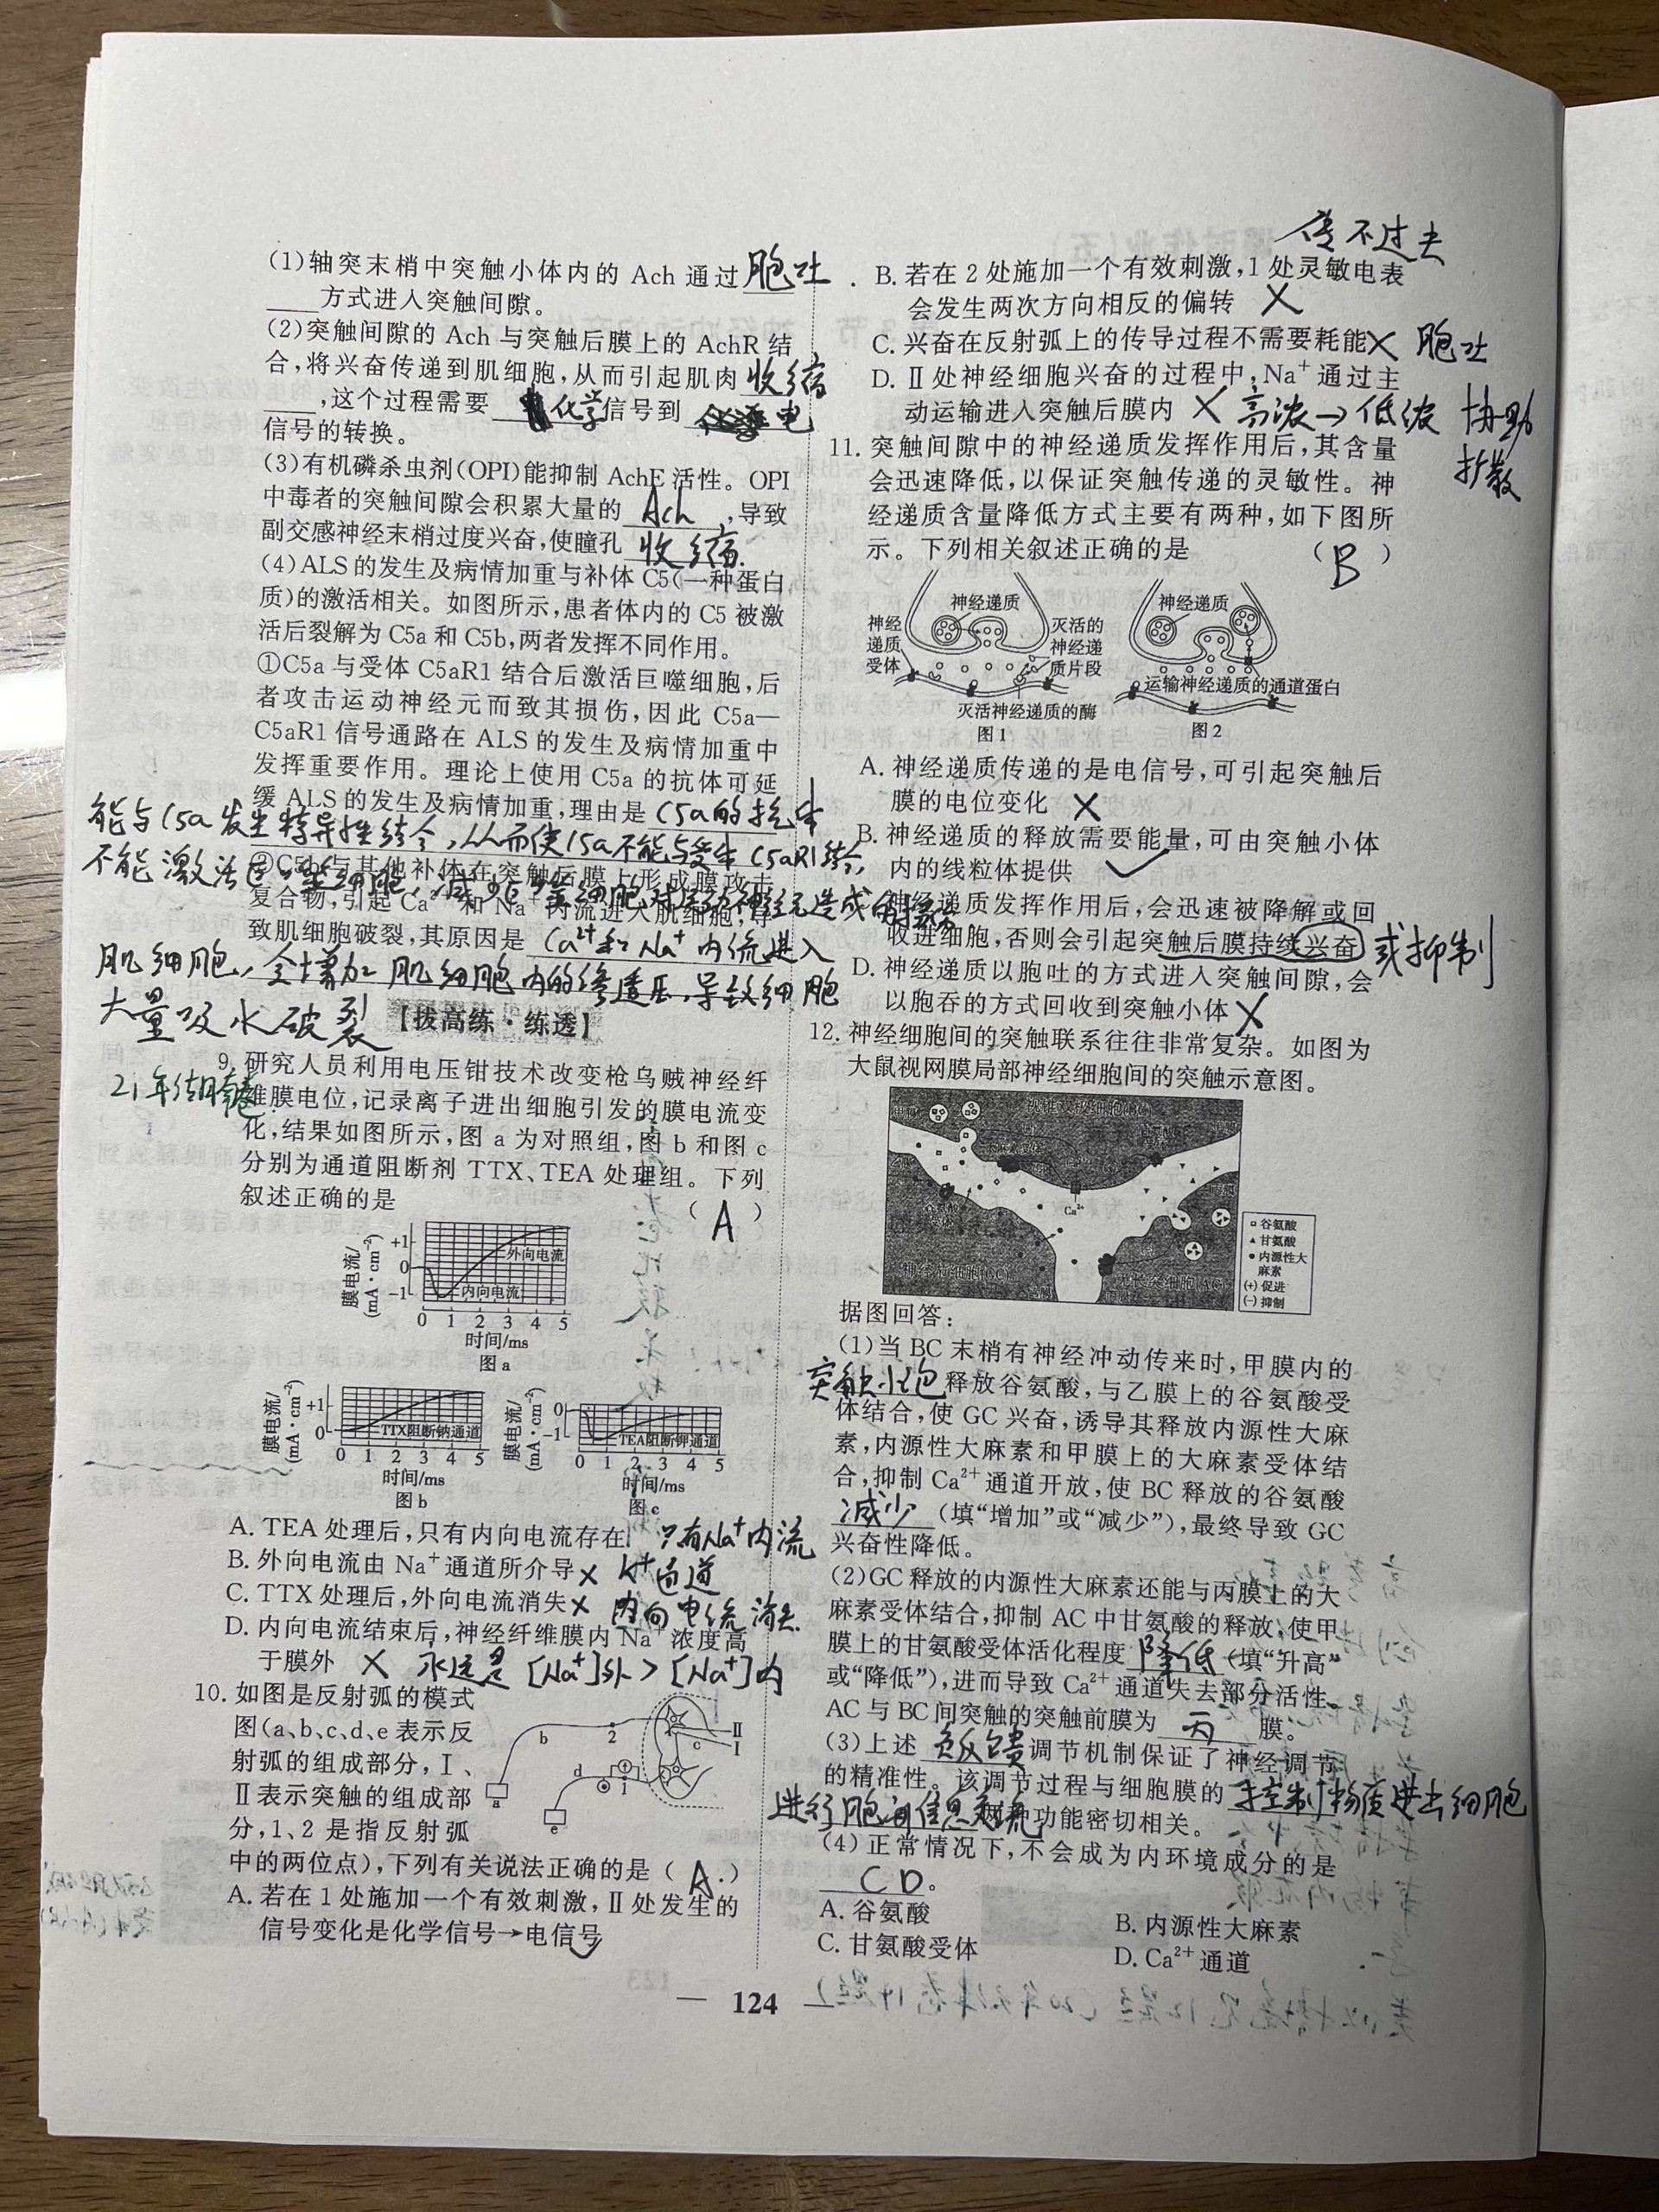 (1)轴突末梢中突触小体内的 Ach 通过 胞吐
方式进入突触间隙。
(2)突触间隙的 Ach 与突触后膜上的 AchR 结
合,将兴奋传递到肌细胞,从而引起肌肉 收缩
,这个过程需要 化学 信号到 电
信号的转换。
(3)有机磷杀虫剂(OPI)能抑制 AchE 活性。OPI
中毒者的突触间隙会积累大量的 Ach ,导致
副交感神经末梢过度兴奋,使瞳孔 收缩.
(4)ALS 的发生及病情加重与补体 C5(一种蛋白
质)的激活相关。如图所示,患者体内的 C5 被激
活后裂解为 C5a 和 C5b,两者发挥不同作用。
①C5a 与受体 C5aR1 结合后激活巨噬细胞,后
者攻击运动神经元而致其损伤,因此 C5a—
C5aR1 信号通路在 ALS 的发生及病情加重中
发挥重要作用。理论上使用 C5a 的抗体可延
缓 ALS 的发生及病情加重,理由是 C5a的抗体
能与C5a发生特异性结合,从而使C5a不能与受体C5aR1结合,
不能激活巨噬细胞,减少巨噬细胞对运动神经元造成的损伤
②C5b 与其他补体在突触后膜上形成膜攻击
复合物,引起 Ca²⁺ 和 Na⁺ 内流进入肌细胞,导
致肌细胞破裂,其原因是 Ca²⁺和Na⁺内流进入
肌细胞,会增加肌细胞内的渗透压,导致细胞
大量吸水破裂
【拔高练·练透】
21年湖南卷
9. 研究人员利用电压钳技术改变枪乌贼神经纤
维膜电位,记录离子进出细胞引发的膜电流变
化,结果如图所示,图 a 为对照组,图 b 和图 c
分别为通道阻断剂 TTX、TEA 处理组。下列
叙述正确的是 ( A )
膜电流/(mA·cm⁻²)
+1
0
-1
外向电流
内向电流
0 1 2 3 4 5
时间/ms
图 a
膜电流/(mA·cm⁻²)
+1
0
TTX阻断钠通道
0 1 2 3 4 5
时间/ms
图 b
膜电流/(mA·cm⁻²)
0
-1
TEA阻断钾通道
0 1 2 3 4 5
时间/ms
图 c
A. TEA 处理后,只有内向电流存在 只有Na⁺内流
B. 外向电流由 Na⁺ 通道所介导 × K⁺通道
C. TTX 处理后,外向电流消失 × 内向电流消失.
D. 内向电流结束后,神经纤维膜内 Na⁺ 浓度高
于膜外 × 永远是 [Na⁺]外 > [Na⁺]内
10. 如图是反射弧的模式
图(a、b、c、d、e 表示反
射弧的组成部分,Ⅰ、
Ⅱ表示突触的组成部
分,1、2 是指反射弧
中的两位点),下列有关说法正确的是 ( A )
b 2 c Ⅱ Ⅰ
a d 1 e
A. 若在 1 处施加一个有效刺激,Ⅱ处发生的
信号变化是化学信号→电信号 ✓
传不过去
B. 若在 2 处施加一个有效刺激,1 处灵敏电表
会发生两次方向相反的偏转 ×
C. 兴奋在反射弧上的传导过程不需要耗能 × 胞吐
D. Ⅱ处神经细胞兴奋的过程中,Na⁺ 通过主
动运输进入突触后膜内 × 高浓→低浓 协助
扩散
11. 突触间隙中的神经递质发挥作用后,其含量
会迅速降低,以保证突触传递的灵敏性。神
经递质含量降低方式主要有两种,如下图所
示。下列相关叙述正确的是 ( B )
神经递质
神经
递质
受体
灭活的
神经递
质片段
灭活神经递质的酶
图 1
神经递质
运输神经递质的通道蛋白
图 2
A. 神经递质传递的是电信号,可引起突触后
膜的电位变化 ×
B. 神经递质的释放需要能量,可由突触小体
内的线粒体提供 ✓
神经递质发挥作用后,会迅速被降解或回
收进细胞,否则会引起突触后膜持续兴奋 或抑制
D. 神经递质以胞吐的方式进入突触间隙,会
以胞吞的方式回收到突触小体 ×
12. 神经细胞间的突触联系往往非常复杂。如图为
大鼠视网膜局部神经细胞间的突触示意图。
Ca²⁺
谷氨酸
甘氨酸
内源性大
麻素
(+) 促进
(-) 抑制
据图回答:
(1)当 BC 末梢有神经冲动传来时,甲膜内的
突触小泡 释放谷氨酸,与乙膜上的谷氨酸受
体结合,使 GC 兴奋,诱导其释放内源性大麻
素,内源性大麻素和甲膜上的大麻素受体结
合,抑制 Ca²⁺ 通道开放,使 BC 释放的谷氨酸
减少 (填“增加”或“减少”),最终导致 GC
兴奋性降低。
(2)GC 释放的内源性大麻素还能与丙膜上的大
麻素受体结合,抑制 AC 中甘氨酸的释放,使甲
膜上的甘氨酸受体活化程度 降低 (填“升高”
或“降低”),进而导致 Ca²⁺ 通道失去部分活性。
AC 与 BC 间突触的突触前膜为 丙 膜。
(3)上述 负反馈 调节机制保证了神经调节
的精准性。该调节过程与细胞膜的 控制物质进出细胞
进行胞间信息交流 两种功能密切相关。
(4)正常情况下,不会成为内环境成分的是
CD 。
A. 谷氨酸 B. 内源性大麻素
C. 甘氨酸受体 D. Ca²⁺ 通道
— 124 —